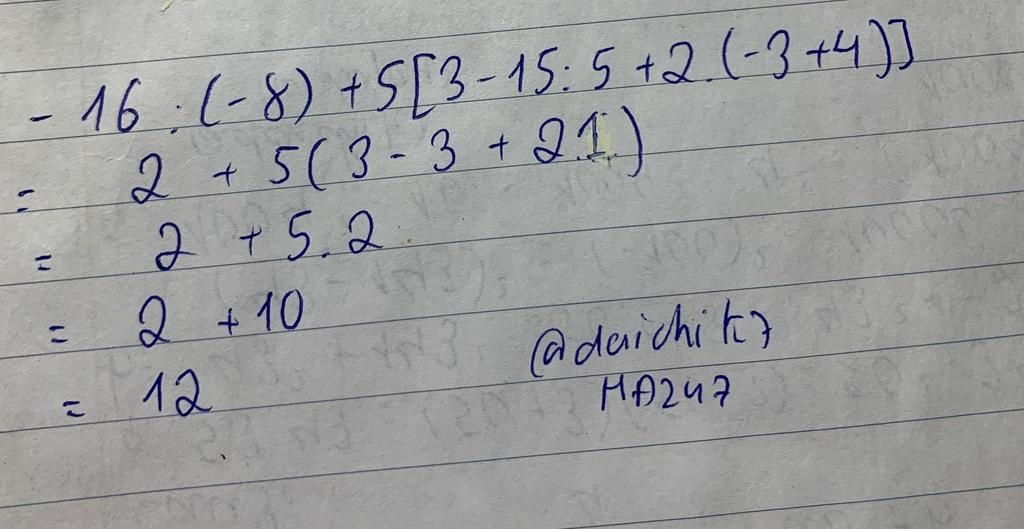 - 16 : (-8) + 5[3 - 15 : 5 + 2.(-3 + 4)]
= 2 + 5(3 - 3 + 2.1)
= 2 + 5.2
= 2 + 10
= 12
@daichi k7
HA247